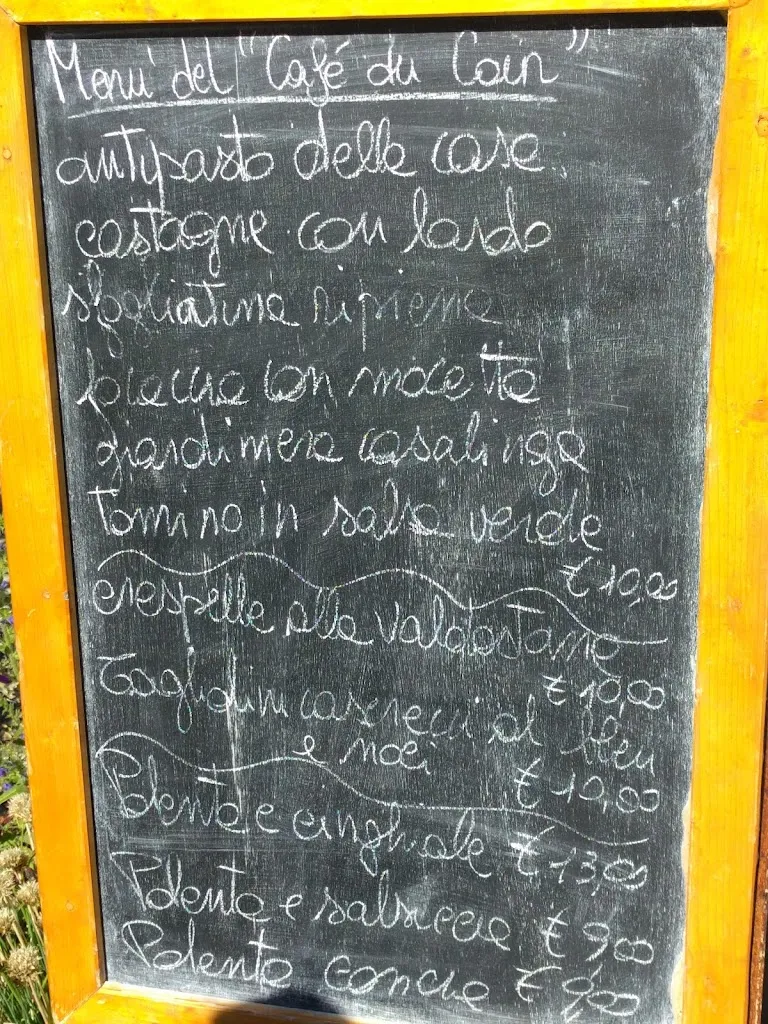 Menù del "Café du Coin"
antipasto della casa:
castagne con lardo
sfogliatina ripiena
focaccia con mocetta
giardiniera casalinga
tomino in salsa verde
€ 10,00
crespelle alla valdostana
€ 10,00
Tagliolini caserecci al bleu
e noci
€ 10,00
Polenta e cinghiale € 13,00
Polenta e salsiccia € 9,00
Polenta concia € 9,00